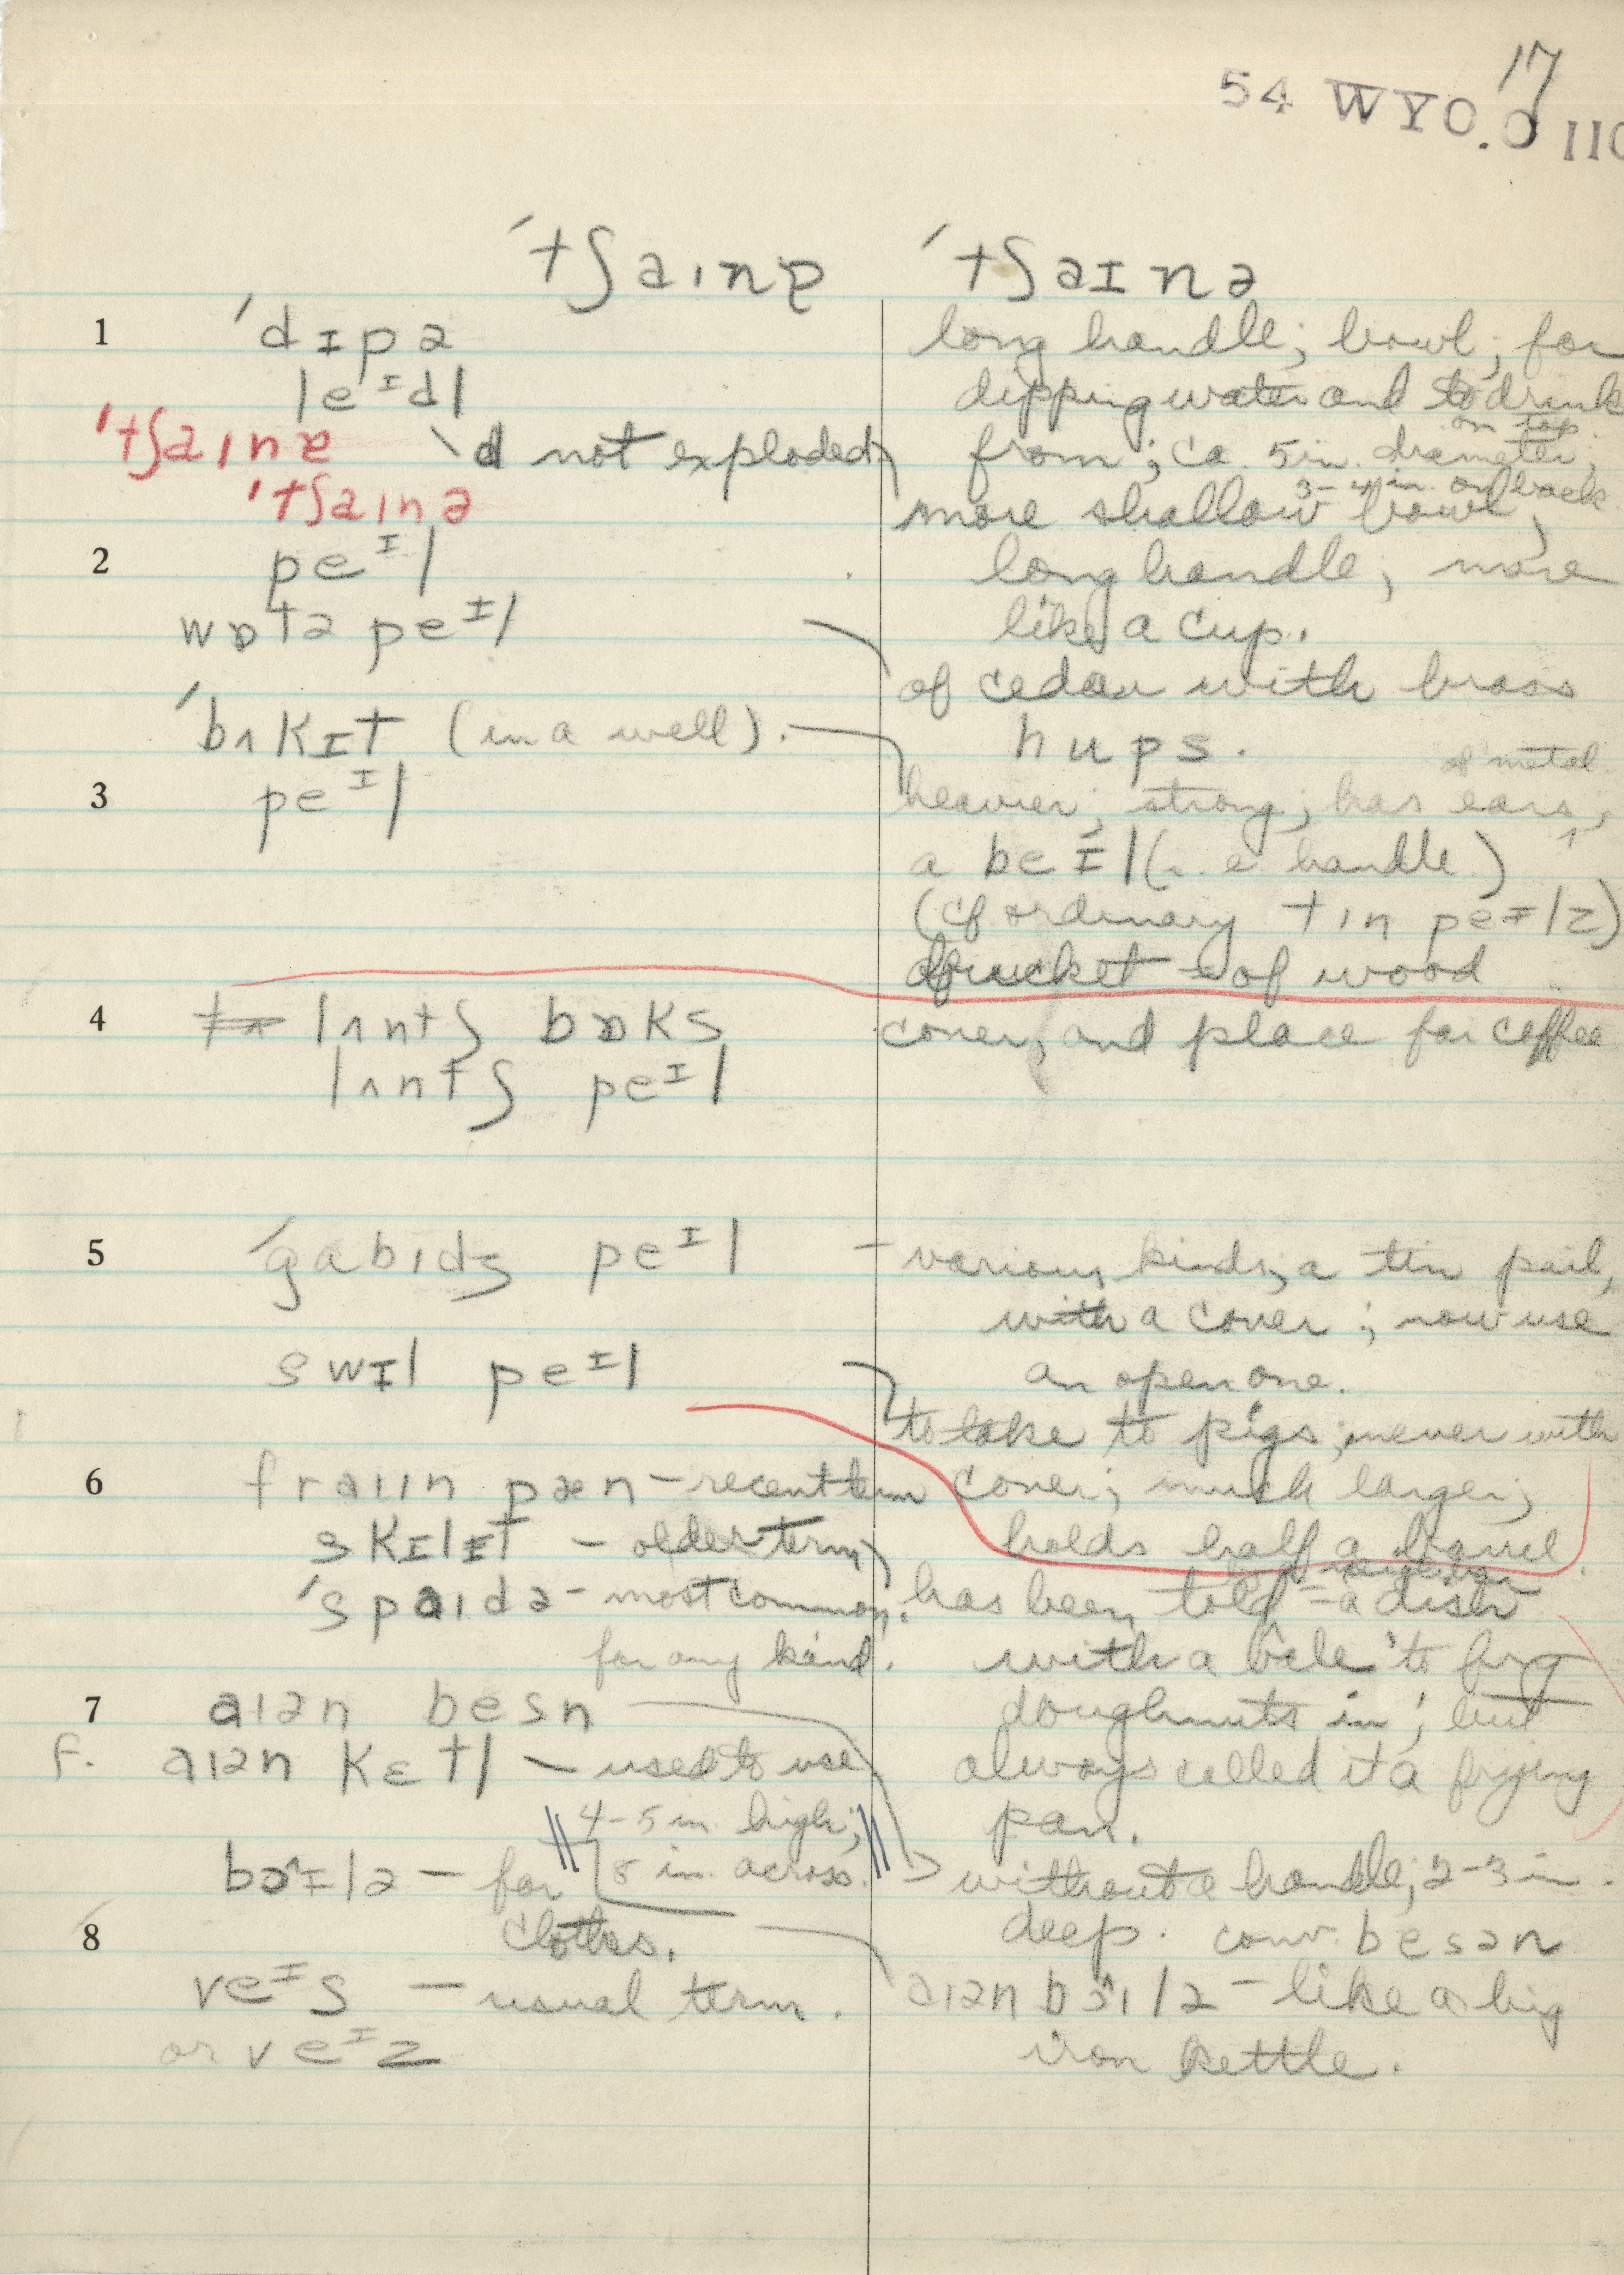 17
54 WYO. 0 110
ˈtʃaɪnɐ ˈtʃaɪnə
1 ˈdɪpə
leᴵdl
ˈtʃaɪnɐ d not exploded
ˈtʃaɪnə
2 peᴵl
wɒtə peᴵl
ˈbʌkɪt (in a well).
3 peᴵl
4 lʌntʃ bɒks
lʌntʃ peᴵl
5 ˈgabɪdʒ peᴵl
swɪl peᴵl
6 fraɪɪn pæn – recent term
skɪlɪt – older term
ˈspaɪdə – most common,
for any kind.
7 aɪən besn
F. aɪən kɛtl – used to use
4-5 in. high;
8 in. across.
bɔɪlə – for
clothes.
8
veᴵs – usual term.
or veᴵz
long handle; bowl; for
dipping water and to drink
on top
from; ca. 5 in. diameter;
3-4 in. on back
more shallow bowl;
long handle; more
like a cup.
of cedar with brass
hups.
of metal
heavier; strong; has ears,
a beɪl (i.e. handle)
(cf ordinary tɪn peɪlz)
bucket – of wood
cover, and place for coffee
– various kinds; a tin pail,
with a cover; now use
an open one.
to take to pigs; never with
cover; much larger;
holds half a barrel.
has been told = a dish
with a bale to fry
doughnuts in; but
always called it a frying
pan.
without a handle; 2-3 in.
deep. conv. besən
aɪən bɔɪlə – like a big
iron kettle.